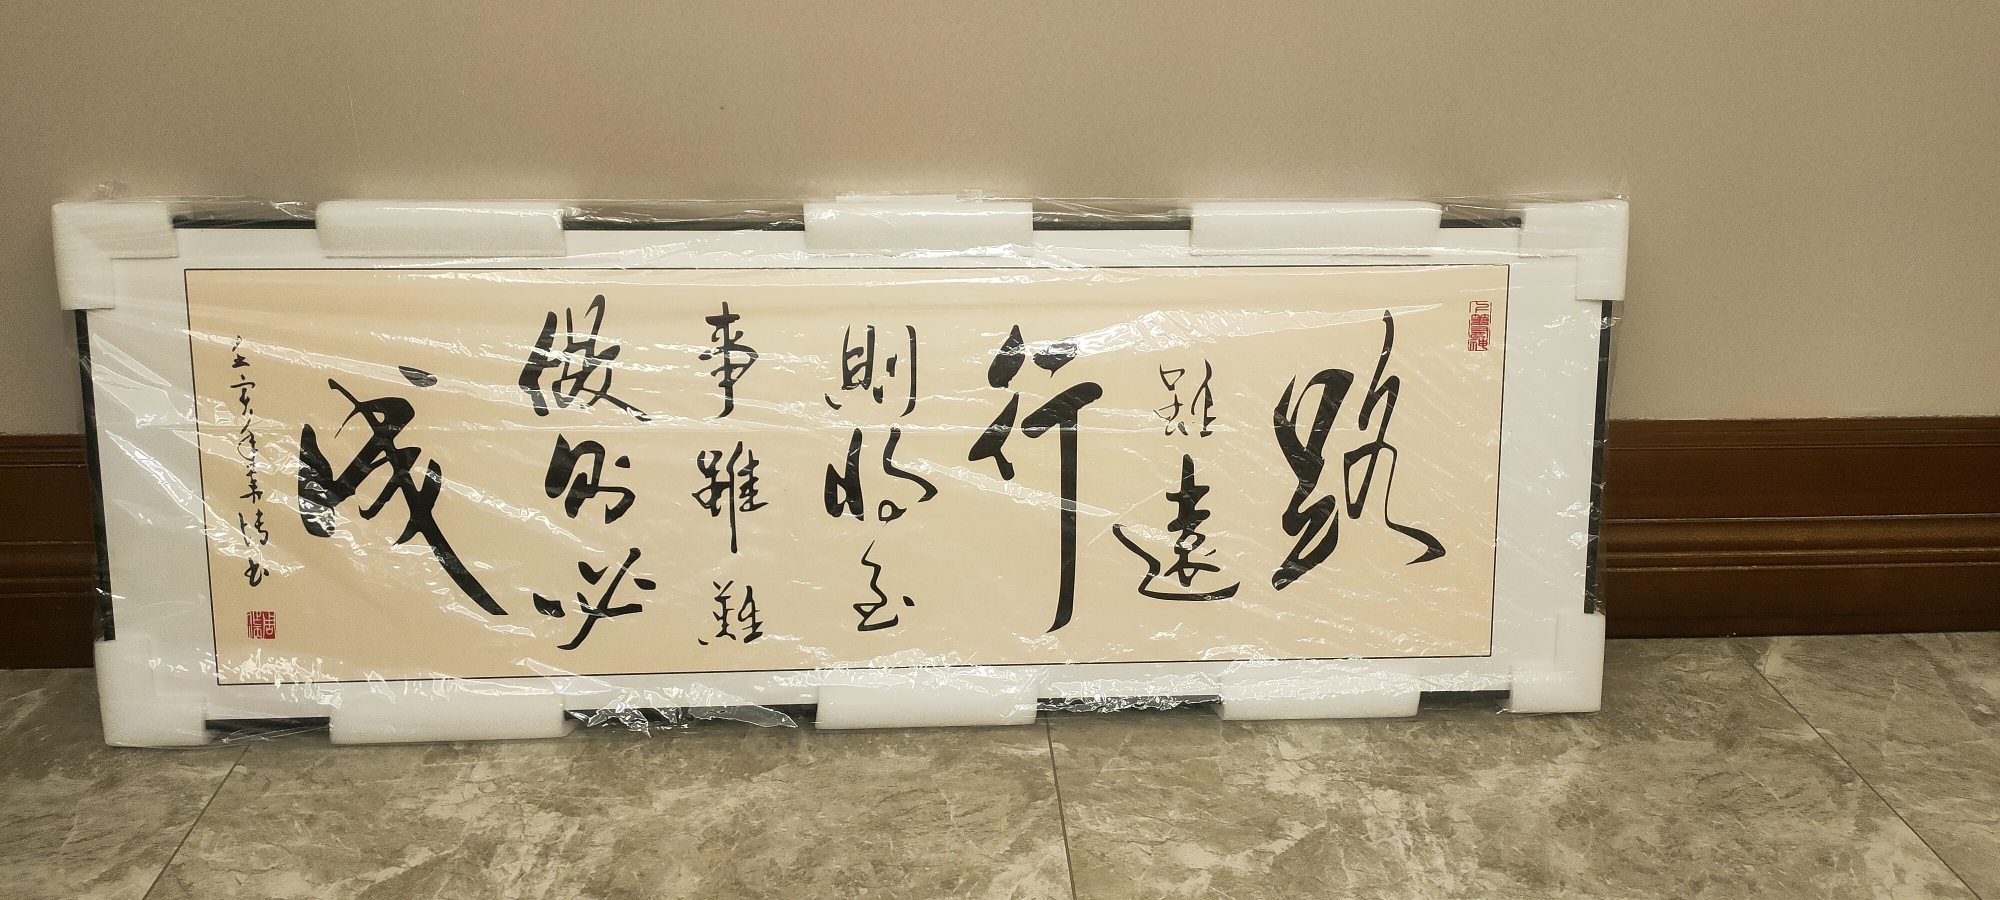 路
雖遠
行
則將至
事雖難
做則必
成
壬寅年
书